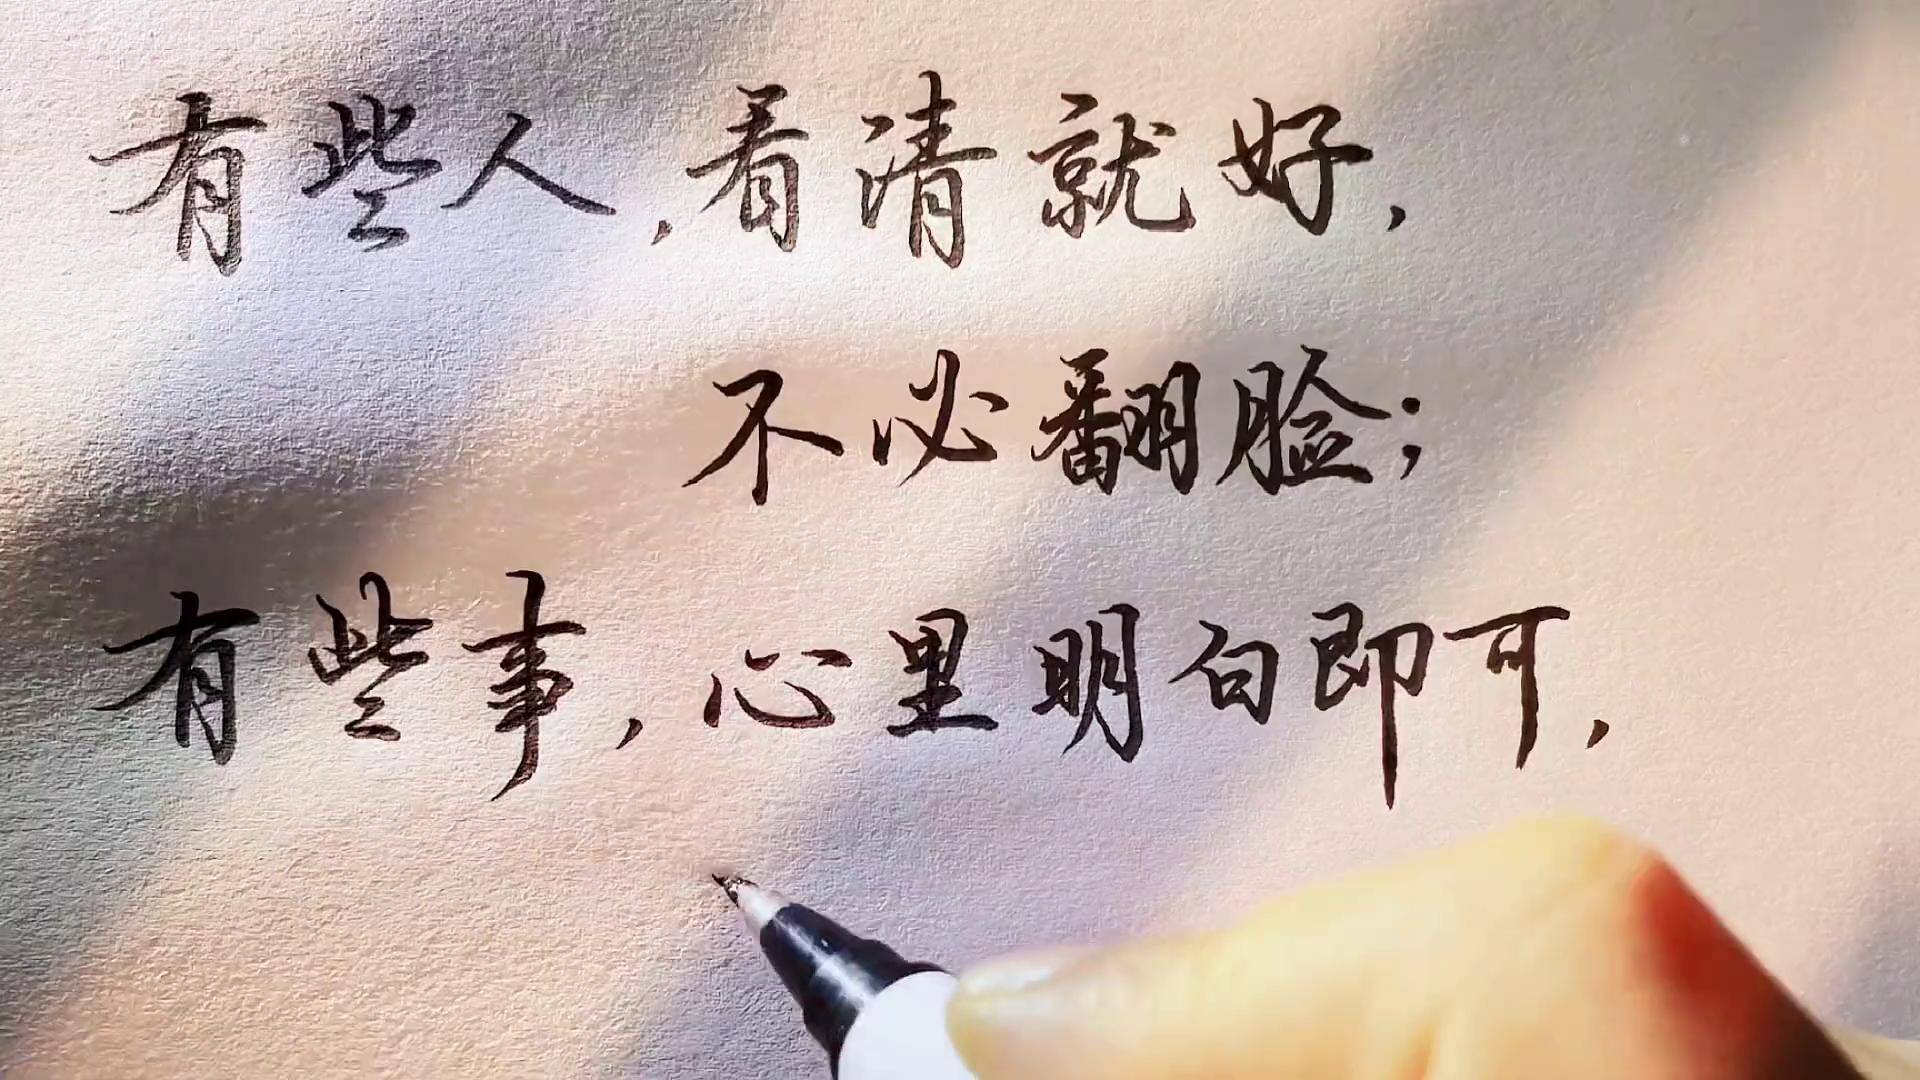 有些人，看清就好，
不必翻脸；
有些事，心里明白即可，